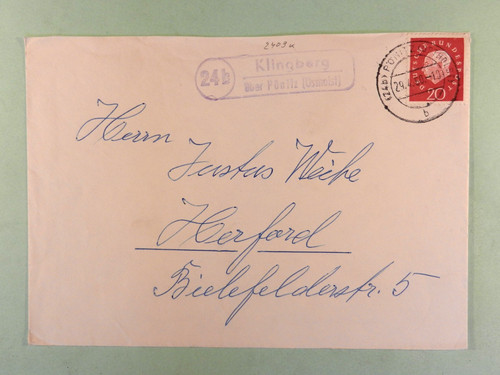 2409a
24b
Klingberg
über Pönitz (Ostholst)
DEUTSCHE BUNDESPOST
20
(24b) PÖNITZ
29.
b
Herrn
Justus Weihe
Herford
Bielefelderstr. 5